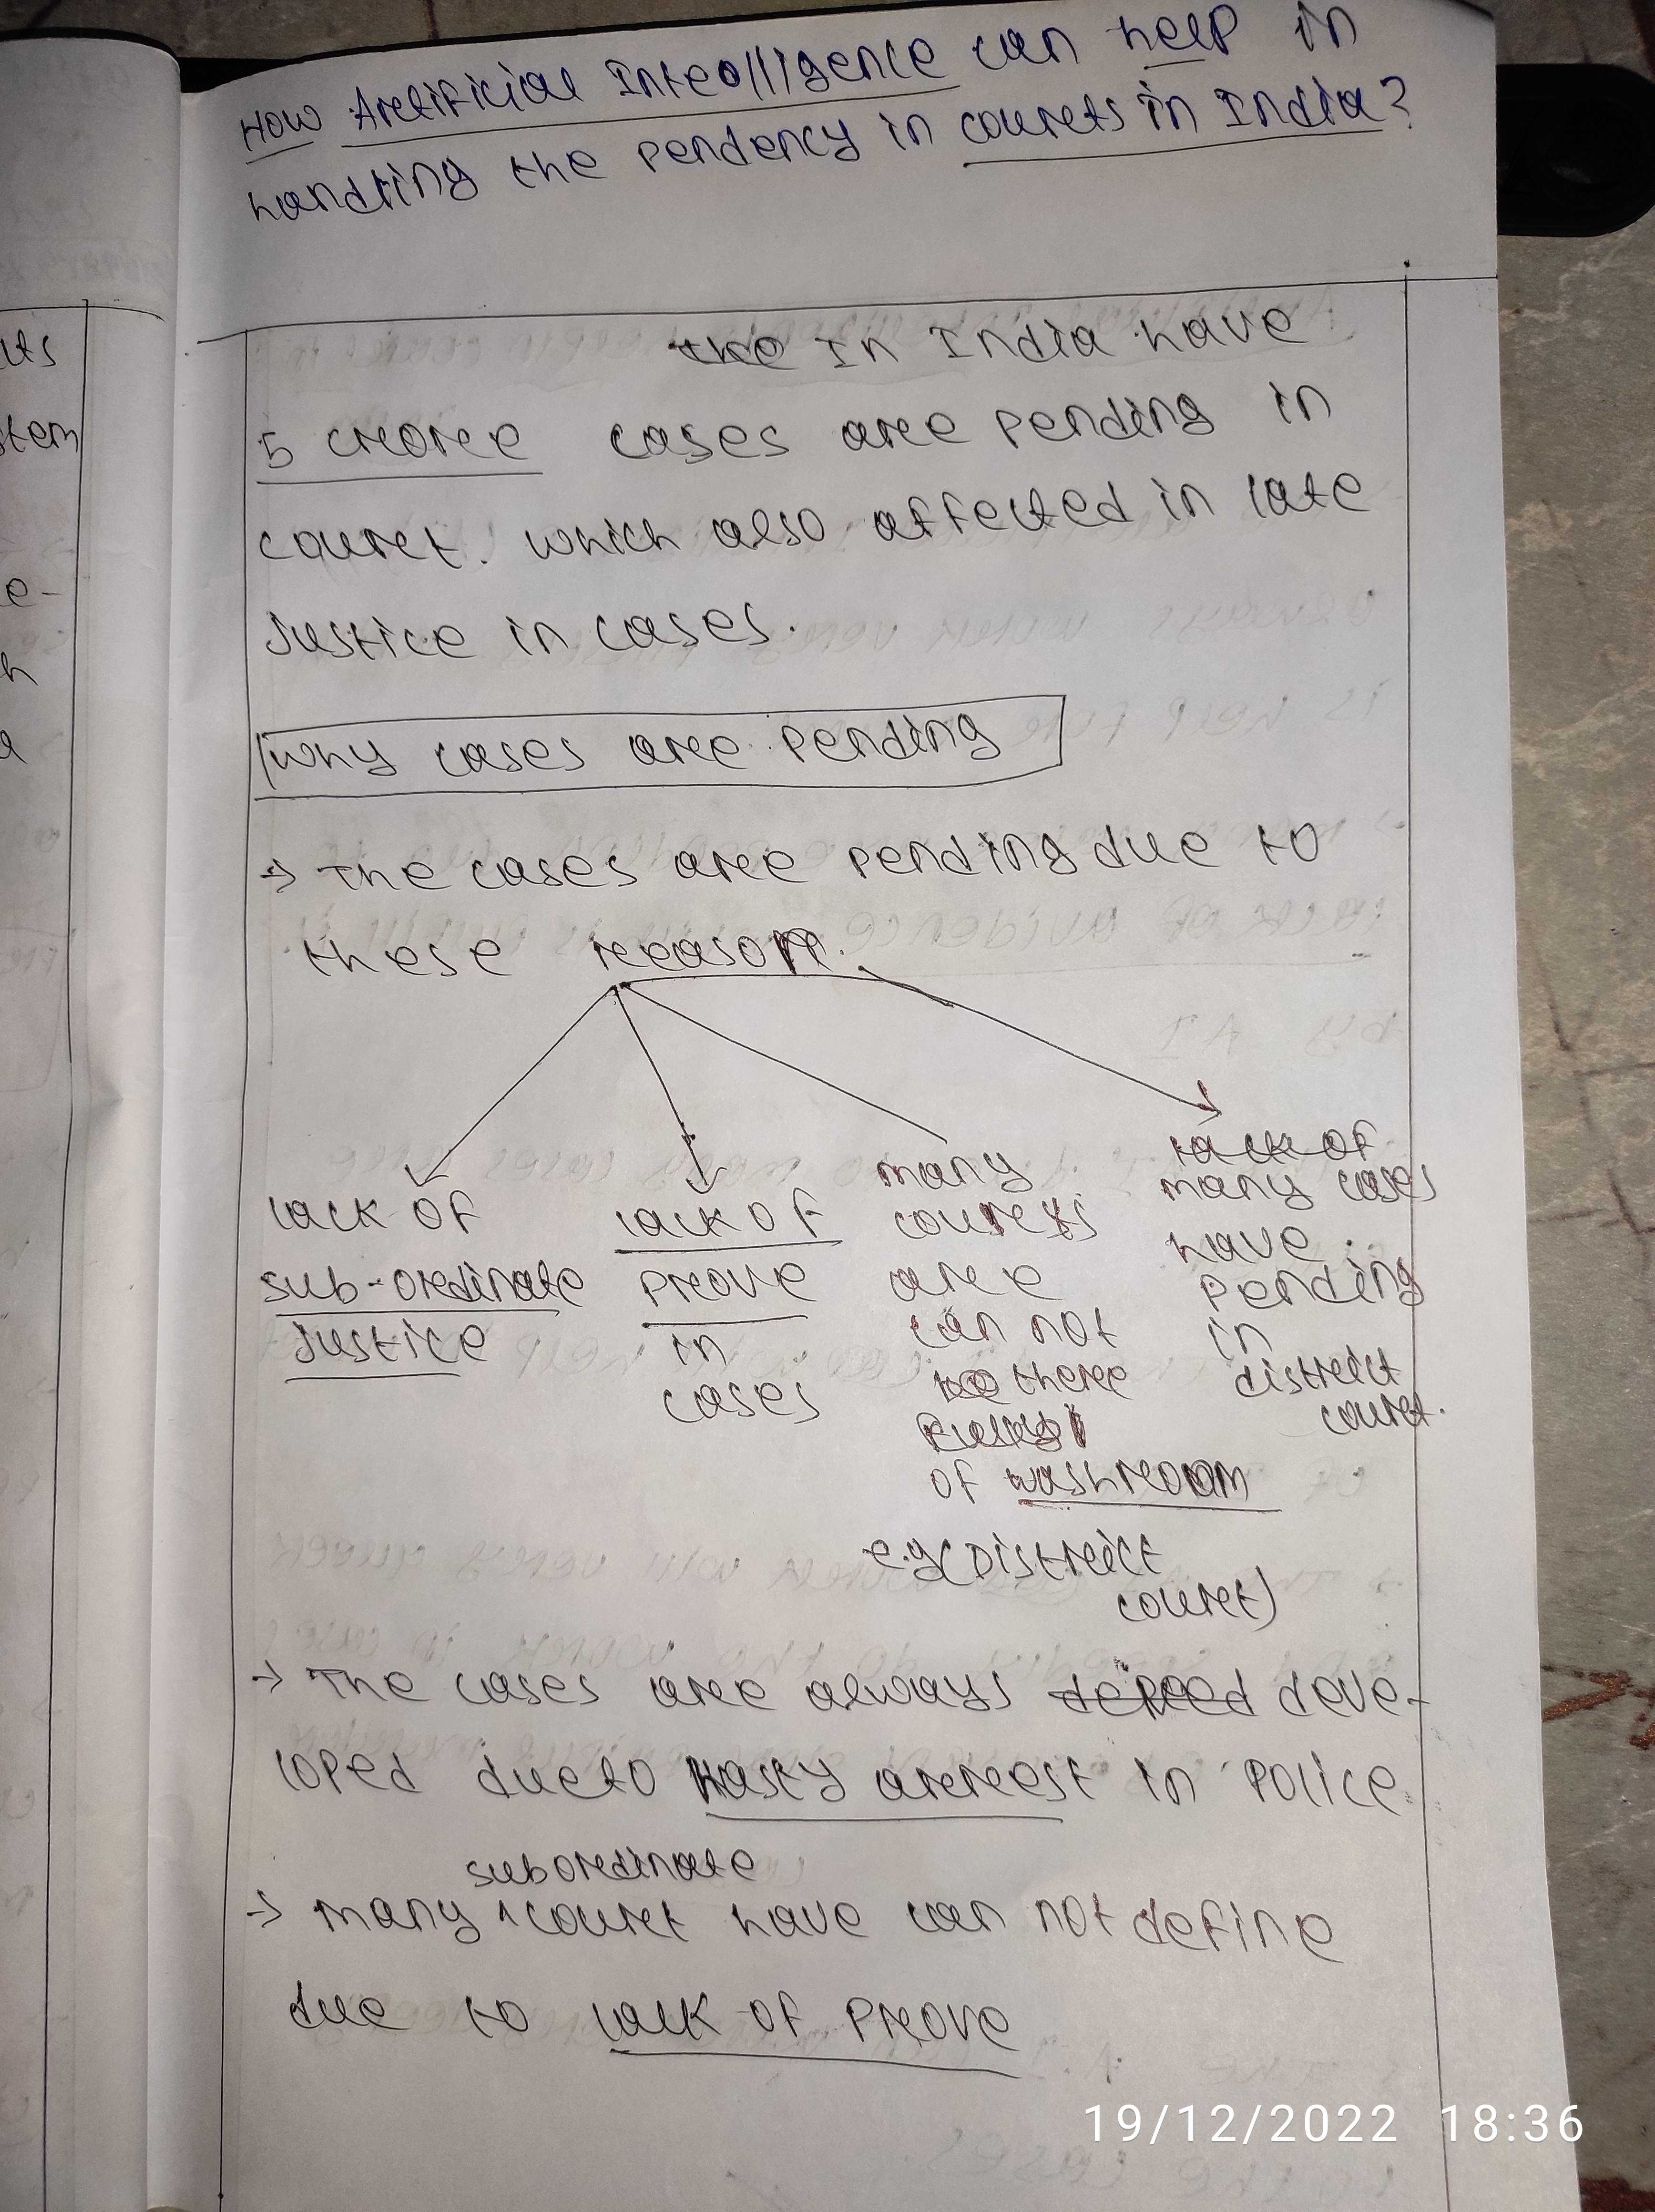 How Artificial Intelligence can help in
handling the pendency in courts in India?
the In India have
5 crore cases are pending in
court. which also affected in late
justice in cases.
why cases are pending
→ The cases are pending due to
these reason.
lack of
sub-ordinate
justice
lack of
prove
in
cases
many
courts
are
can not
there
of washroom
e.g (District
court)
lack of
many cases
have
pending
in
district
court.
→ The cases are always deve-
loped due to Hasty arrest in police
subordinate
→ many ^ court have can not define
due to lack of prove
uts
stem
e-
h
a
19/12/2022 18:36